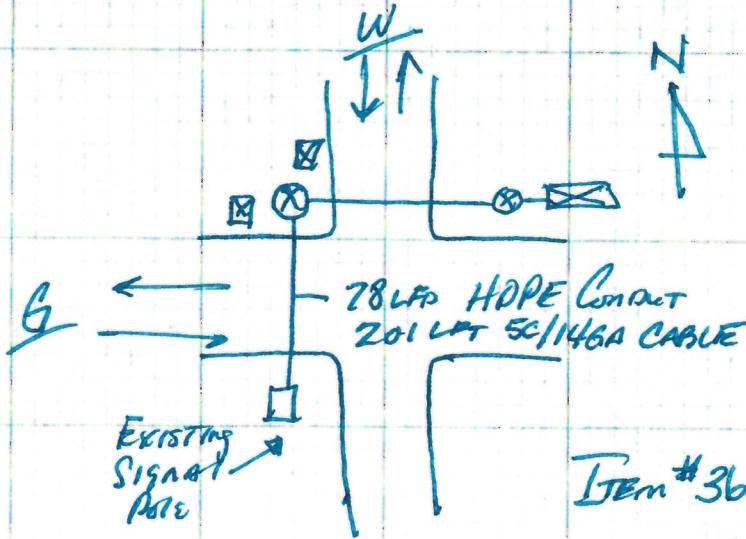 W
N
G
78 LFT HDPE CONDUIT
201 LFT 5C/14GA CABLE
EXISTING
SIGNAL
POLE
ITEM #36